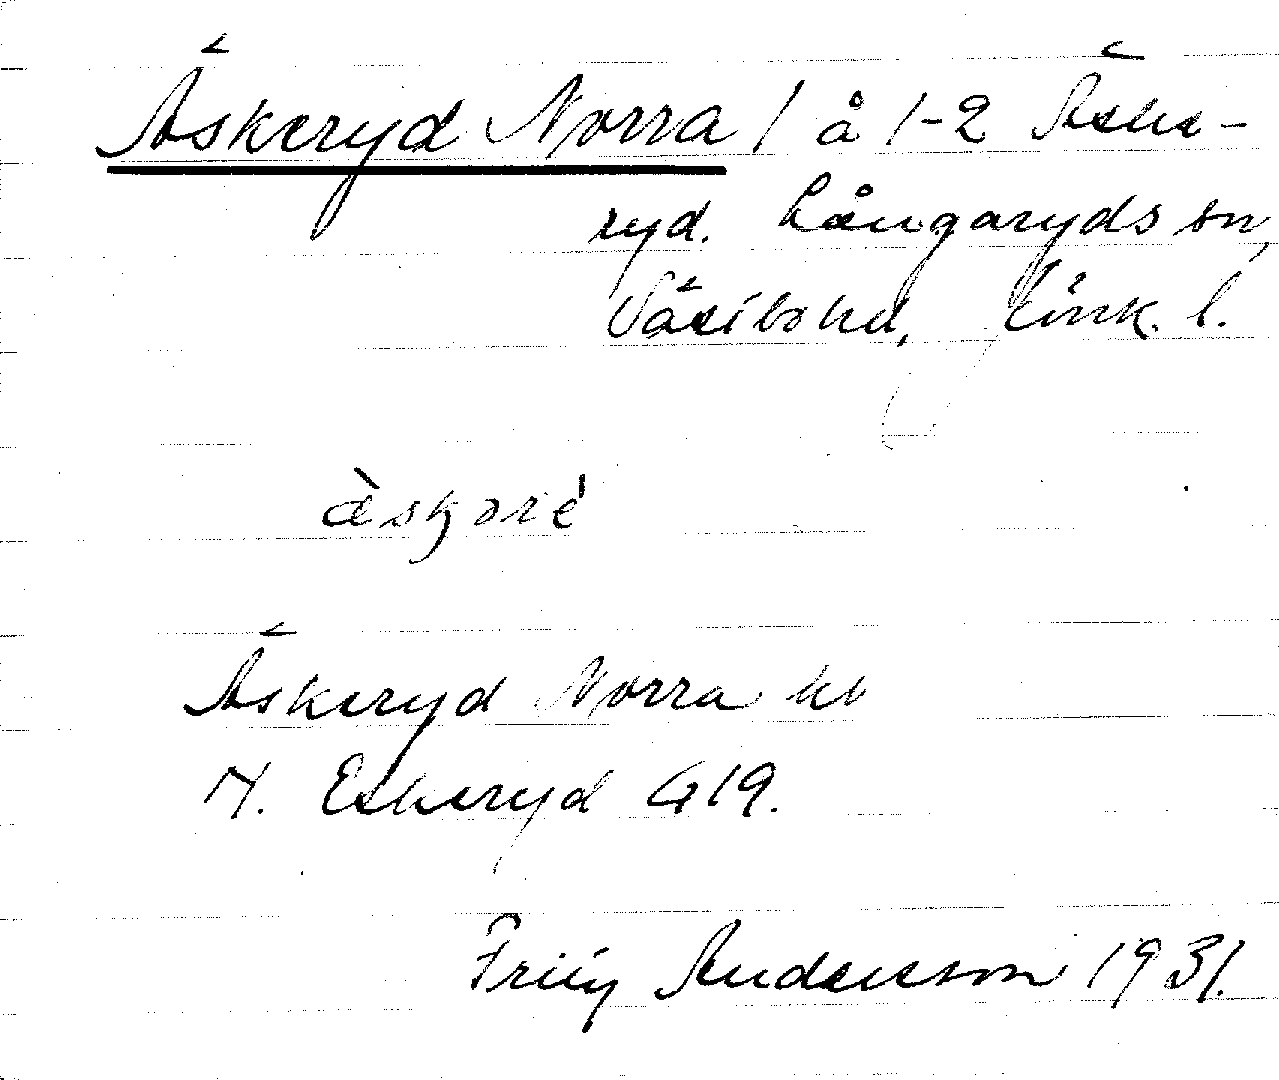 Äskeryd Norra / å 1-2 Äske-
ryd. Långaryds sn,
Västbo hd, Jönk. l.
æ̀skəré
Äskeryd Norra hb
N. Eskeryd G 19.
Frity Anderson 1931.